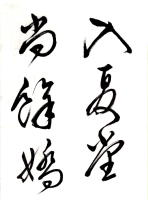 入夏堂
尚餘嬌